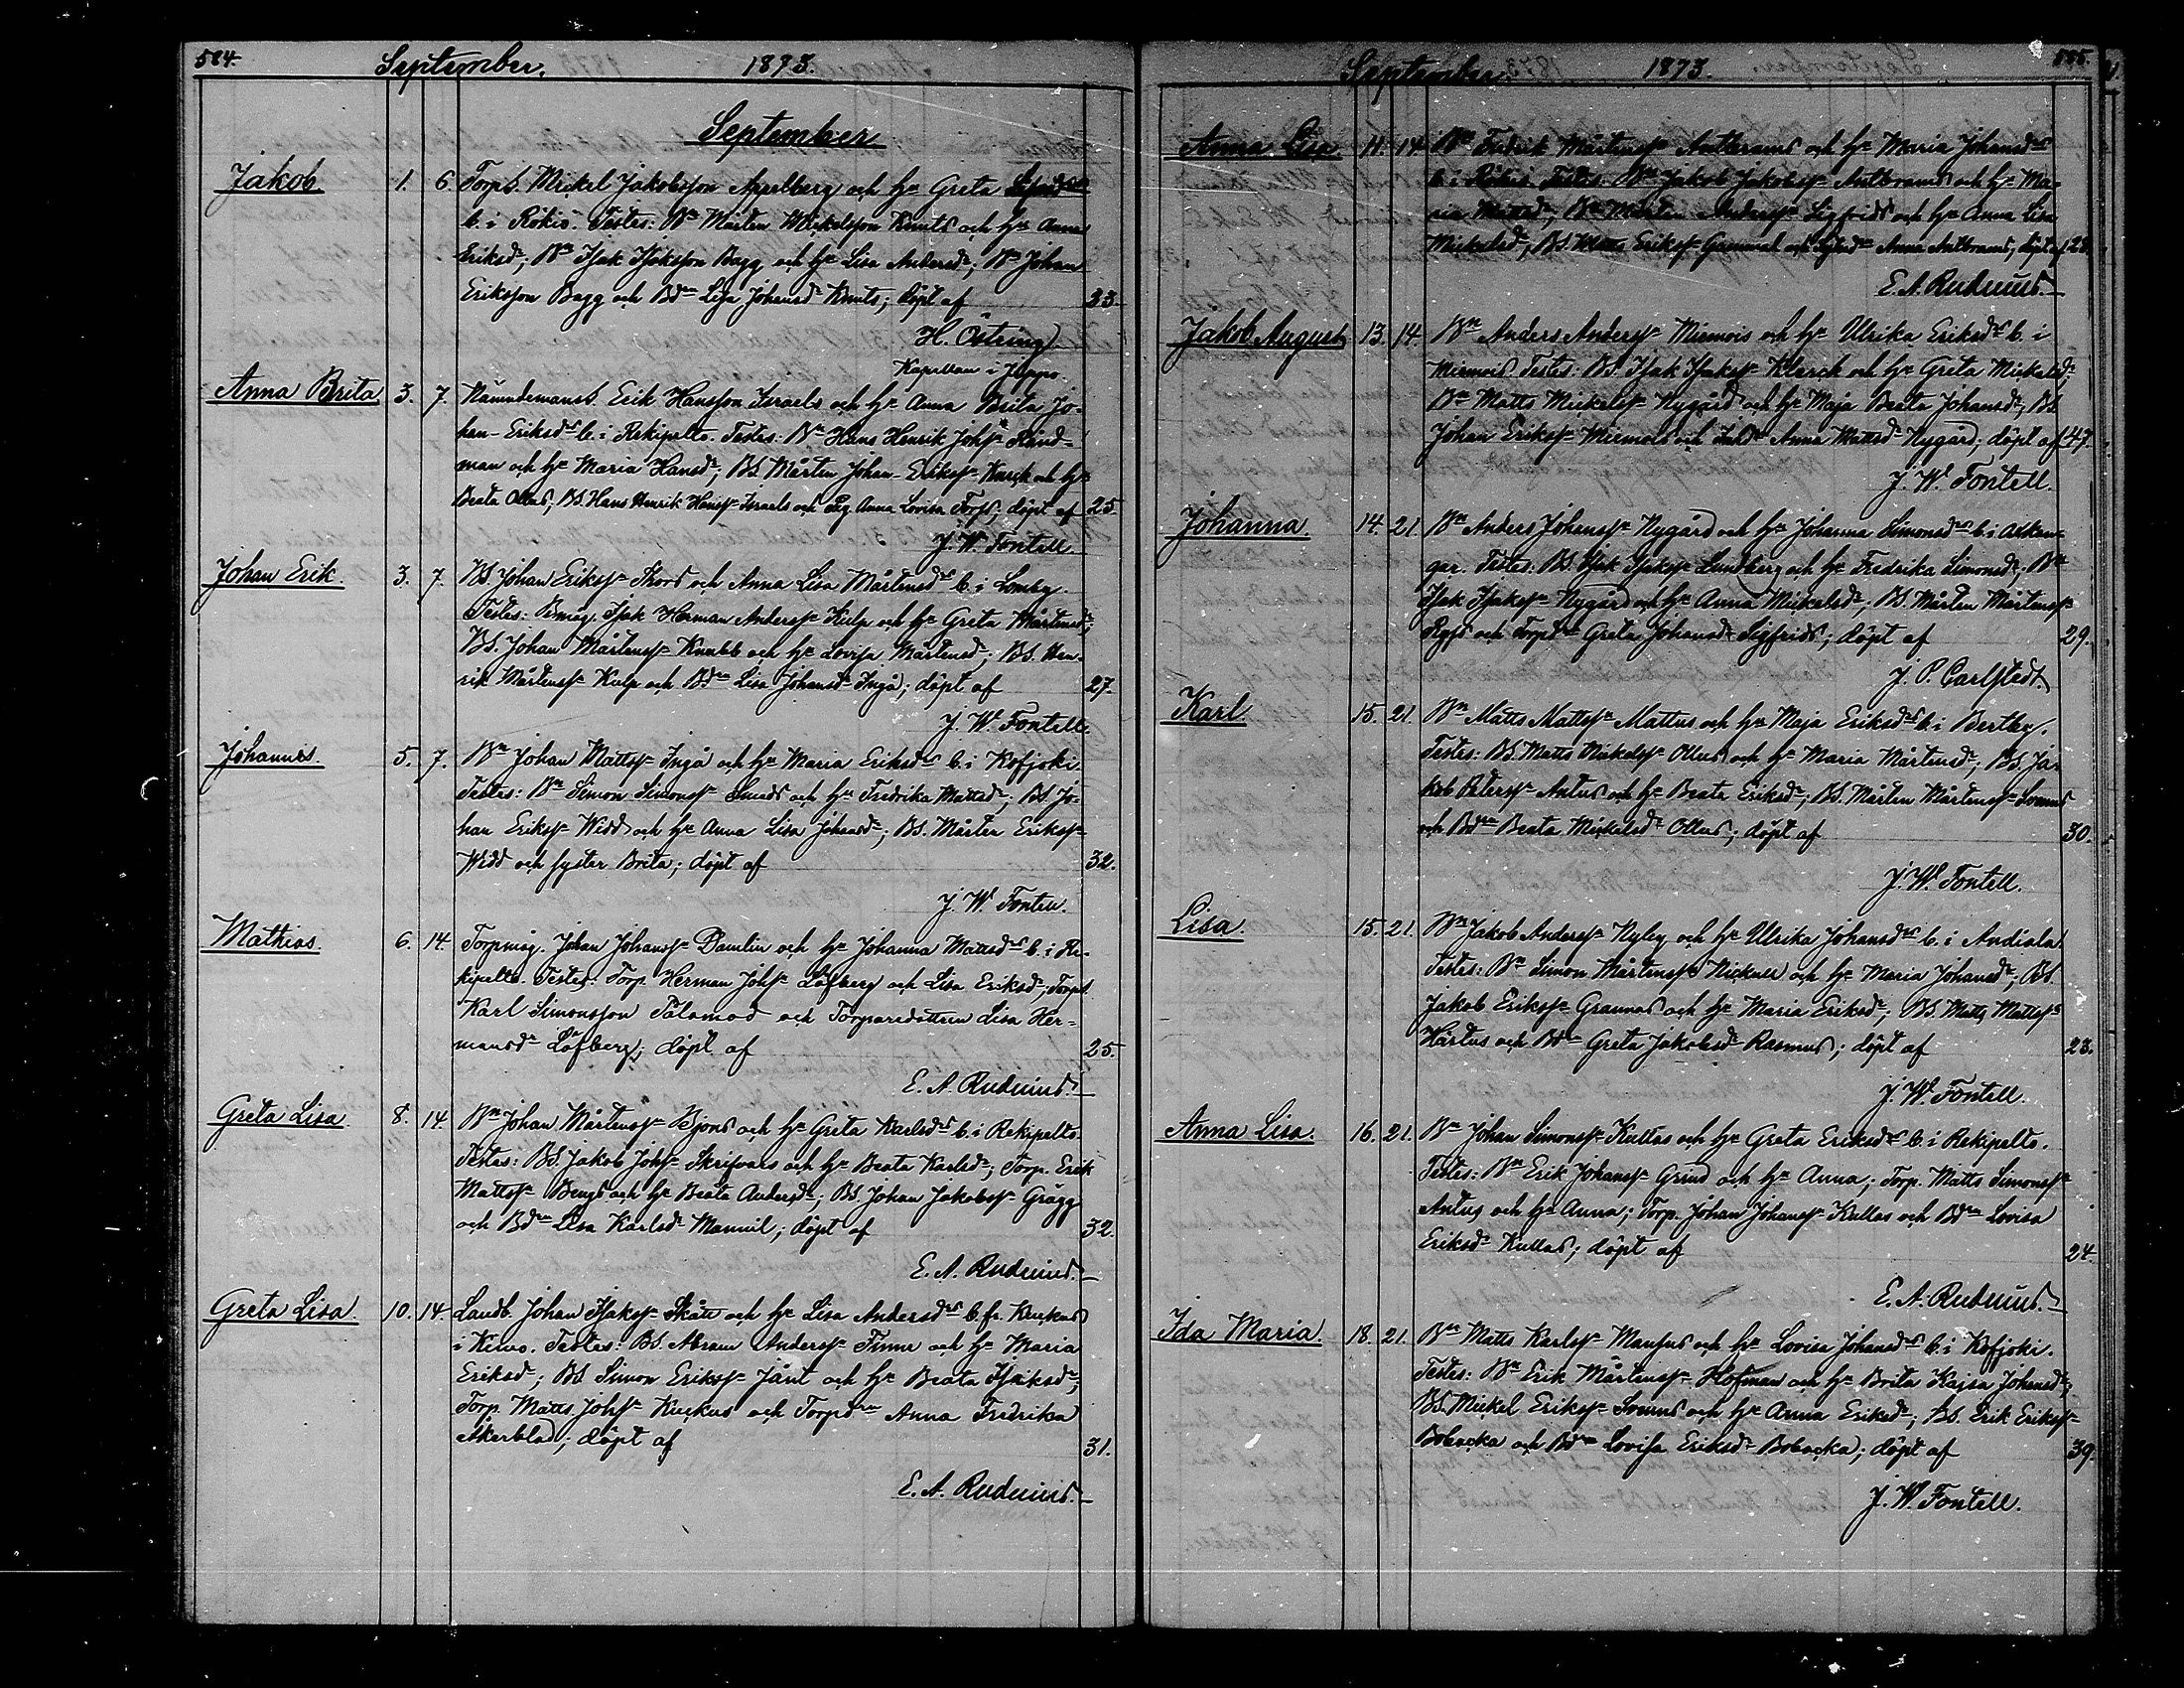 584. September. 1873.
September
Jakob 1. 6. TorpS. Mickel Jakobsson Appelberg och h. Greta
b. i Rökiö. Testes: Bn Mårten Mickelsson Knuts och h. Anna
Eriksd; Bn Isak Isaksson Bagg och h. Lisa Andersd; Bn Johan
Eriksson Bagg och Bdn Lisa Johansd Knuts; döpt af 33.
H. Östring
Kapellan i Jeppo.
Anna Brita 3. 7. NämndemansS. Erik Hansson Israels och h. Anna Brita Jo-
han-Eriksd b. i Rekipelto. Testes: Bn Hans Henrik Johss Ränd-
man och h. Maria Hansd; BS. Mårten Johan-Erikss och h.
Beata Ollus; BS. Hans Henrik Hanss Israels och Pig. Anna Lovisa Torps; döpt af 25.
J. W. Fontell
Johan Erik. 3. 7. BS Johan Erikss Skors och Anna Lisa Mårtensd b. i Lomby.
Testes: Bmåg. Isak Herman Anderss Kulp och h. Greta Mårtensd;
BS. Johan Mårtenss Knubb och h. Lovisa Mårtensd; BS. Hen-
rik Mårtenss Kulp och Bdn Lisa Johansd Ingå; döpt af 27.
J. W. Fontell.
Johannes. 5. 7. Bn Johan Mattss Ingå och h. Maria Eriksd b. i Kofjoki.
Testes: Bn Simon Simonss Smeds och h. Fredrika Mattsd; BS. Jo-
han Erikss Widd och h. Anna Lisa Johansd; BS. Mårten Erikss
Widd och syster Brita; döpt af 32.
J. W. Fontell.
Mathias. 6. 14. Torpmåg. Johan Johanss Damlin och h. Johanna Mattsd b. i Re-
kipelto. Testes: Torp. Herman Johss Löfberg och Lisa Eriksd; TorpS.
Karl Simonsson Tälamod och Torparedottren Lisa Her-
mansd Löfberg; döpt af 25.
E. A. Rudenius.
Greta Lisa 8. 14. Bn Johan Mårtenss Bjons och h. Greta Karlsd b. i Rekipelto.
Testes: BS. Jakob Johss Skrifvars och h. Beata Karlsd; Torp. Erik
Mattss Bengs och h. Beata Andersd; BS. Johan Jakobss Grägg
och Bdn Lisa Karlsd Mannil; döpt af 32.
E. A. Rudenius.
Greta Lisa. 10. 14. Landb. Johan Isakss Skått och h. Lisa Andersd b. fr. Kuckus
i Kimo. Testes: BS. Abram Anderss Finne och h. Maria
Eriksd; BS Simon Erikss Jånt och h. Beata Isaksd;
Torp. Matts Johss Kuckus och Torpdn Anna Fredrika
Åkerblad; döpt af 31.
E. A. Rudenius.
September. 1873. 585.
Anna Lisa 11. 14. Bn Fredrik Mårtenss Antbrams och h. Maria Johansd
b. i Rökiö. Testes: Bn Jakob Jakobss Antbrams och h. Ma-
ria Mattsd; Bn Mårten Anderss Sigfrids och h. Anna Lisa
Mickelsd; BS. Matts Erikss Gammal och Anna Antbrams; döpt af 28.
E. A. Rudenius.
Jakob August 13. 14. Bn Anders Anderss Miemois och h. Ulrika Eriksd b. i
Miemois. Testes: BS. Isak Isakss Klarck och h. Greta Mickelsd;
Bn Matts Mickelss Nygård och h. Maja Beata Johansd; BS
Johan Erikss Miemois och Anna Mattsd Nygård; döpt af 47.
J. W. Fontell.
Johanna. 14. 21. Bn Anders Johanss Nygård och h. Johanna Simonsd b. i Alkan-
gar. Testes: BS. Isak Isakss Lundberg och h. Fredrika Simonsd; Bn
Isak Isakss Nygård och h. Anna Mickelsd; BS. Mårten Mårtenss
Ryss och Torpdn Greta Johansd Sigfrids; döpt af 29.
J. P. Carlstedt.
Karl 15. 21. Bn Matts Mattss Mattus och h. Maja Eriksd b. i Bertby.
Testes: BS. Matts Mickelss Ollus och h. Maria Mårtensd; BS. Ja-
kob Peterss Antus och h. Beata Eriksd; BS. Mårten Mårtenss Svenns
och Bdn Beata Mickelsd Ollus; döpt af 30.
J. W. Fontell.
Lisa. 15. 21. Bn Jakob Anderss Nyby och h. Ulrika Johansd b. i Andiala.
Testes: Bn Simon Mårtenss Nickuls och h. Maria Johansd; BS.
Jakob Erikss Grannas och h. Maria Eriksd; BS. Matts Mattss
Hartus och Bdn Greta Jakobsd Rasmus; döpt af 23.
J. W. Fontell.
Anna Lisa. 16. 21. Bn Johan Simonss Kullas och h. Greta Eriksd b. i Rekipelto.
Testes: Bn Erik Johanss Grind och h. Anna; Torp. Matts Simonss
Antus och h. Anna; Torp. Johan Johanss Kullas och Bdn Lovisa
Eriksd Kullas; döpt af 24.
E. A. Rudenius.
Ida Maria. 18. 21. Bn Matts Karlss Mansus och h. Lovisa Johansd b. i Kofjoki.
Testes: Bn Erik Mårtenss Hofman och h. Brita Kajsa Johansd;
BS. Mickel Erikss Svenns och h. Anna Eriksd; BS. Erik Erikss
Bobacka och Bdn Lovisa Eriksd Bobacka; döpt af 39.
J. W. Fontell.